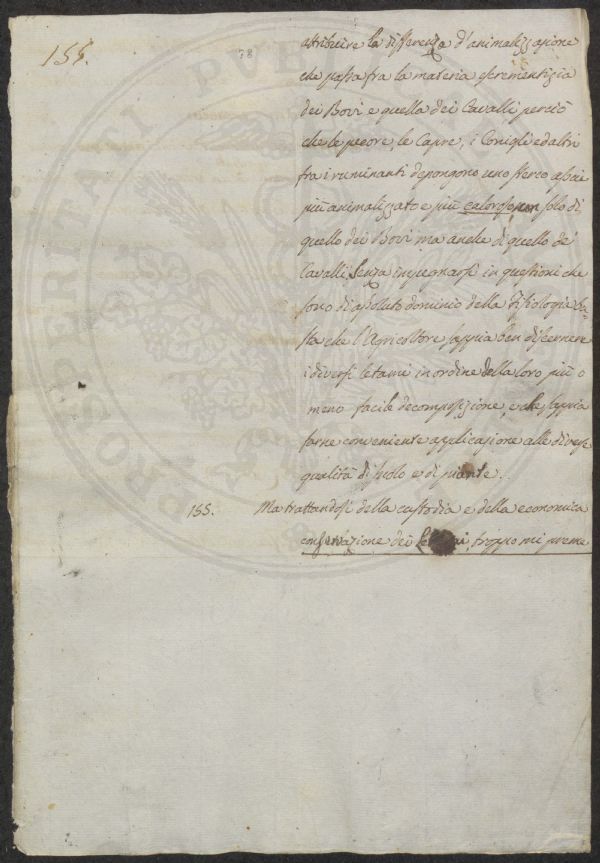 155.
78
attribuire la differenza d'animalizzazione
che passa fra la materia escrementizia
dei Bovi e quella dei Cavalli perciò
che le pecore, le Capre, i Conigli ed altri
fra i ruminanti depongono uno sterco assai
più animalizzato e più caloroso non solo di
quello dei Bovi ma anche di quello de'
Cavalli. Senza impegnarsi in questioni che
sono di assoluto dominio della Fisiologia ba-
sta che l'Agricoltore sappia ben discernere
i diversi letami in ordine della loro più o
meno facile decomposizione, e che sappia
farne conveniente applicazione alle diverse
qualità di suolo e di piante.
155. Ma trattandosi della custodia e della economica
conservazione dei troppo mi preme
PROSPERITATI PUBLICAE